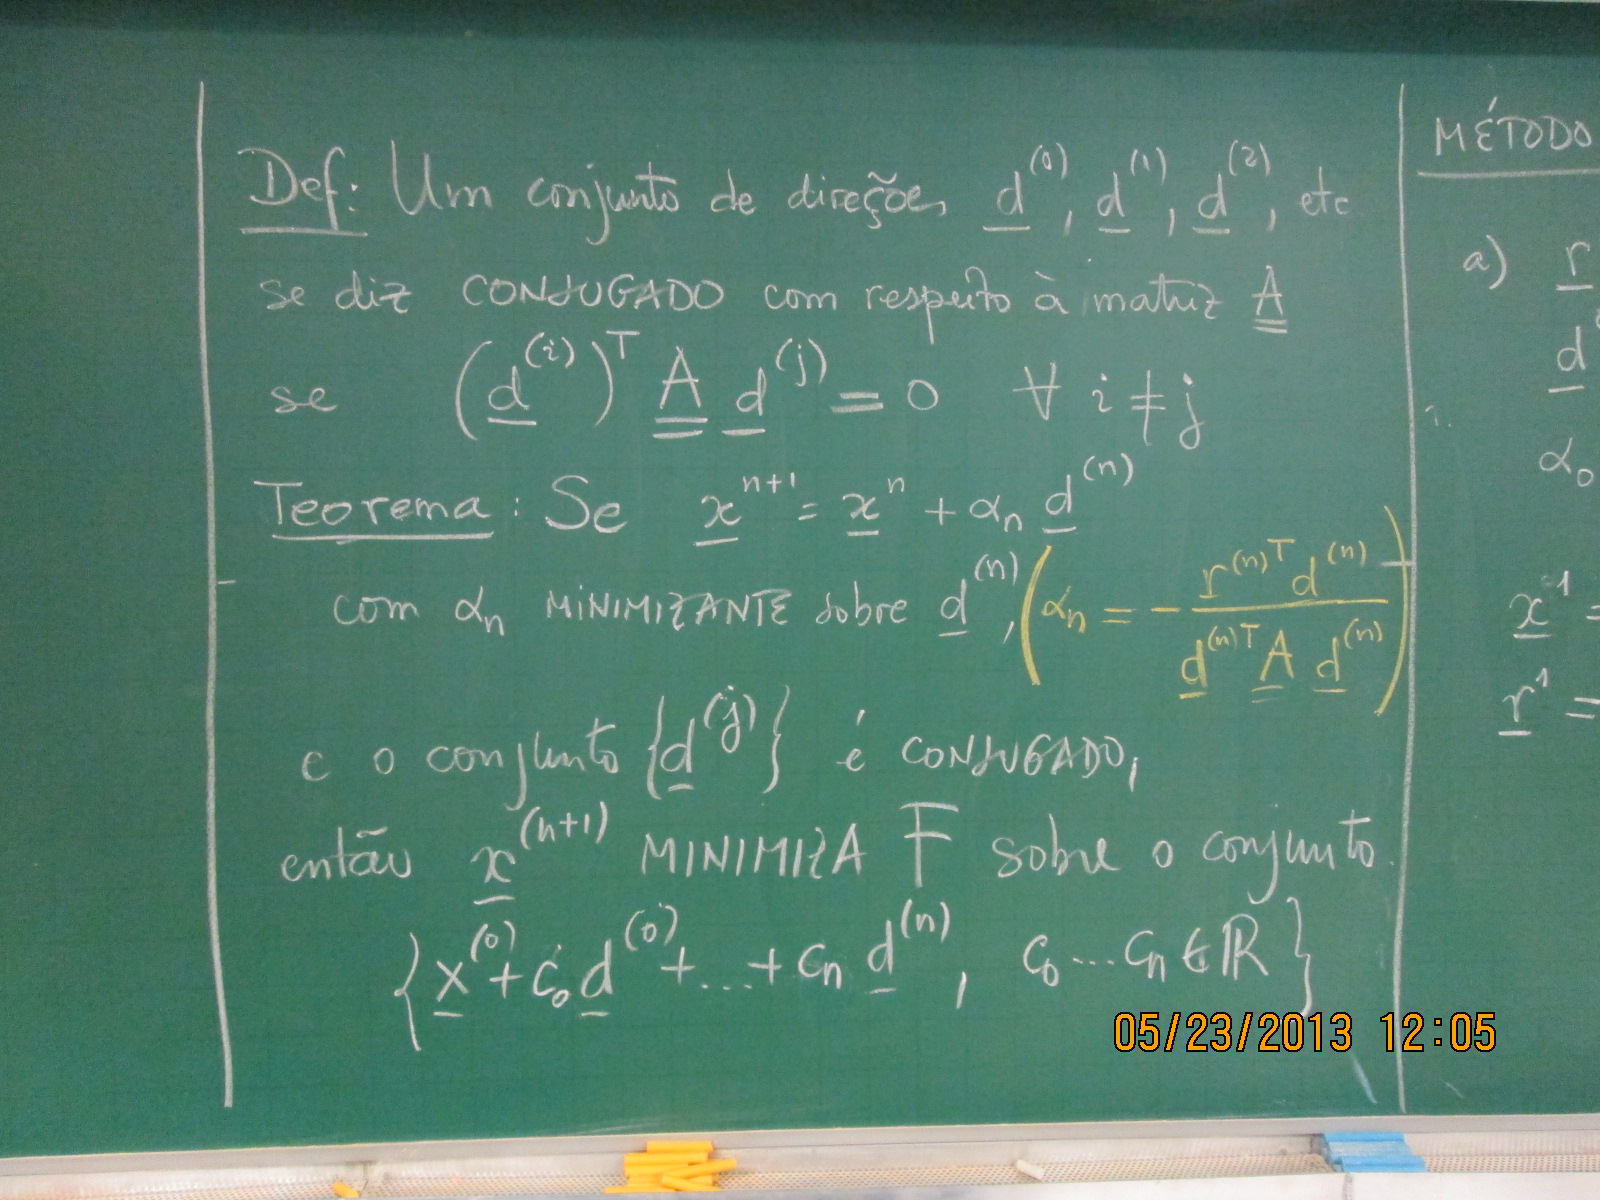 Def: Um conjunto de direções d^(0), d^(1), d^(2), etc
se diz CONJUGADO com respeito à matriz A
se (d^(i))^T A d^(j) = 0 ∀ i ≠ j
Teorema: Se x^n+1 = x^n + αn d^(n)
com αn MINIMIZANTE sobre d^(n), (αn = - r^(n)T d^(n) / d^(n)T A d^(n))
e o conjunto {d^(j)} é CONJUGADO,
então x^(n+1) MINIMIZA F sobre o conjunto
{x^(0) + c0 d^(0) + ... + cn d^(n), c0 ... cn ∈ ℝ}
MÉTODO
a) r
d
α0
x^1 =
r^1 =
05/23/2013 12:05